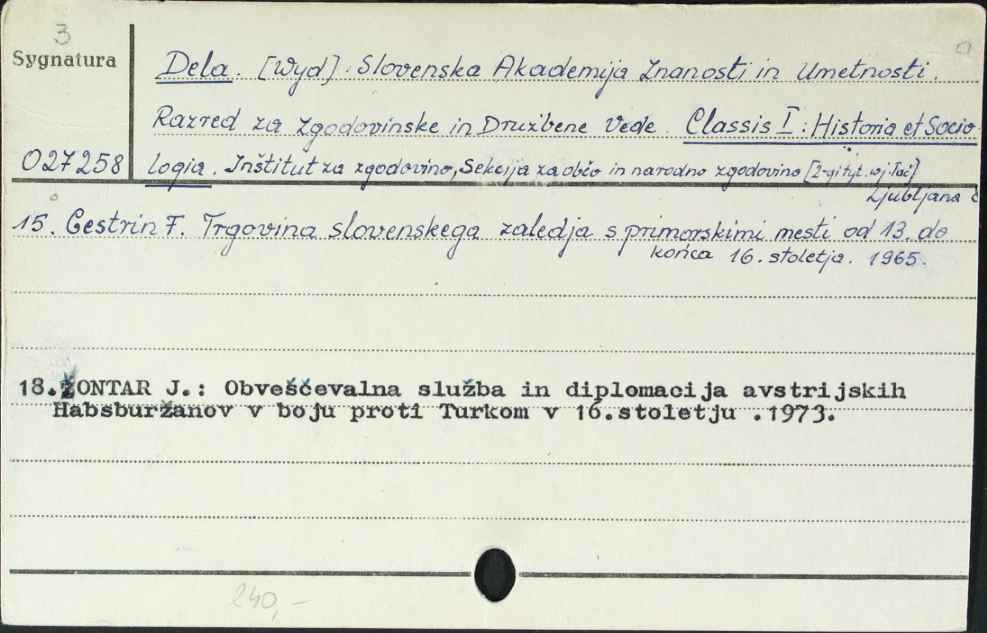 3
Sygnatura
Dela. [Wyd]. Slovenska Akademija Znanosti in Umetnosti.
Razred za Zgodovinske in Družbene Vede. Classis I: Historia et Socio
027258
logia. Inštitut za zgodovino, Sekcija za občo in narodno zgodovino [2-gi tyt. wj. łać]
Ljubljana
15. Cestrin F. Trgovina slovenskega zaledja s primorskimi mesti od 13. do
konca 16. stoletja. 1965.
18. ŽONTAR J.: Obveščevalna služba in diplomacija avstrijskih
Habsburžanov v boju proti Turkom v 16.stoletju .1973.
240,-